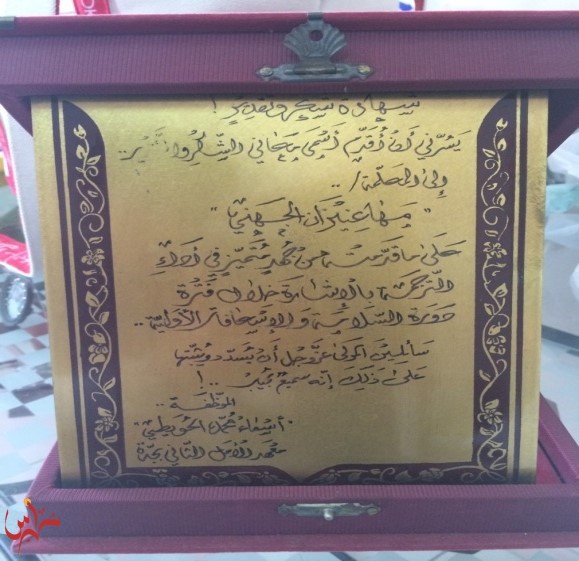 شهادة شكر وتقدير !
يسرّني أن أُقدّم أسمى معاني الشّكر والتقدير ..
إلى المعلمة / ..
" مها عيد الجهني "
على ما قدّمته من جهدٍ متميّزٍ في أداءِ
الترجمة بالإشارة خلال فترة
دورة السّلامة والإسعافات الأولية ..
سائلين المولى عزّوجل أن يُسدّد ويثبّتها
على ذلك إنه سميعٌ مجيبُ .. !
الموظفة ..
" أسماء محمد الحويطي "
معهد الأمل الثاني بجدة